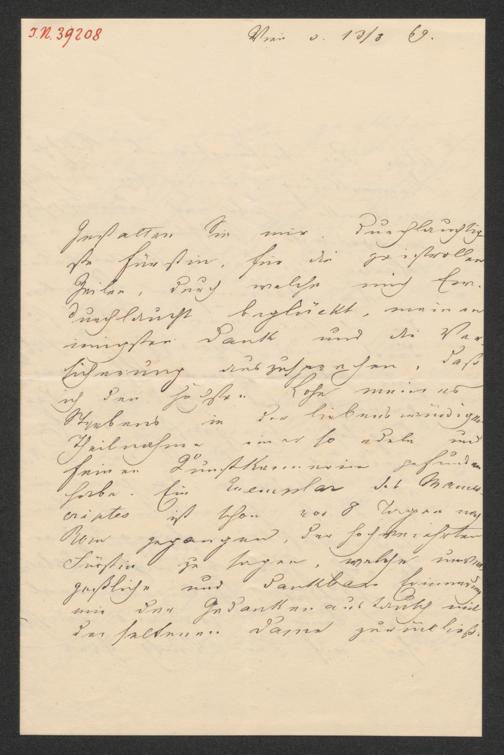 I.N. 39208
Wien d. 13/3 69.
Gestatten Sie mir, Durchlauchtig-
ste Fürstin, für die geistvollen
Zeilen, durch welche mich Eure
Durchlaucht beglückt, meinen
innigsten Dank und die Ver-
sicherung auszusprechen, daß
ich den höchsten Lohn meines
Strebens in der liebenswürdigen
Theilnahme einer so edeln und
feinen Kunstkennerin gefunden
habe. Ein Exemplar des Manus-
criptes ist schon vor 8 Tagen nach
Rom gegangen, der hochverehrten
Fürstin zu sagen, welche unver-
geßliche und dankbare Erinnerung
mir der Gedankenaustausch mit
der seltenen Dame zurückließ.